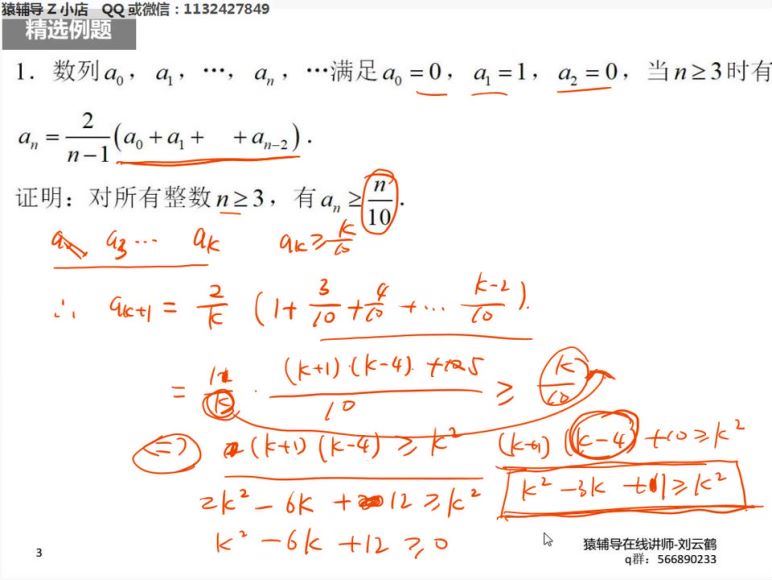 猿辅导 Z 小店 QQ 或微信：1132427849
精选例题
1. 数列 a₀, a₁, …, aₙ, …满足 a₀ = 0, a₁ = 1, a₂ = 0, 当 n ≥ 3 时有
aₙ = 2/(n−1) (a₀ + a₁ + + aₙ₋₂).
证明：对所有整数 n ≥ 3, 有 aₙ ≥ n/10.
a₃ … aₖ aₖ ≥ k/10
∴ aₖ₊₁ = 2/k (1 + 3/10 + 4/10 + … (k−2)/10).
(k+1)(k−4) /10 ≥ k/10
(k+1)(k−4) ≥ k² (k+1)(k−4) + 10 ≥ k²
2k² − 6k + 12 ≥ k² k² − 3k + ≥ k²
k² − 6k + 12 ≥ 0
3
猿辅导在线讲师-刘云鹤
q群：566890233